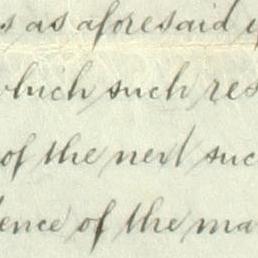 s as aforesaid
which such res
of the next suc
ence of the ma